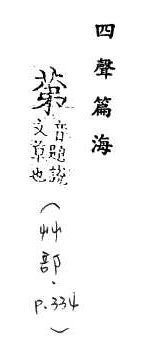 四聲篇海
苐
音題說
文草也
(艸部.p.334)